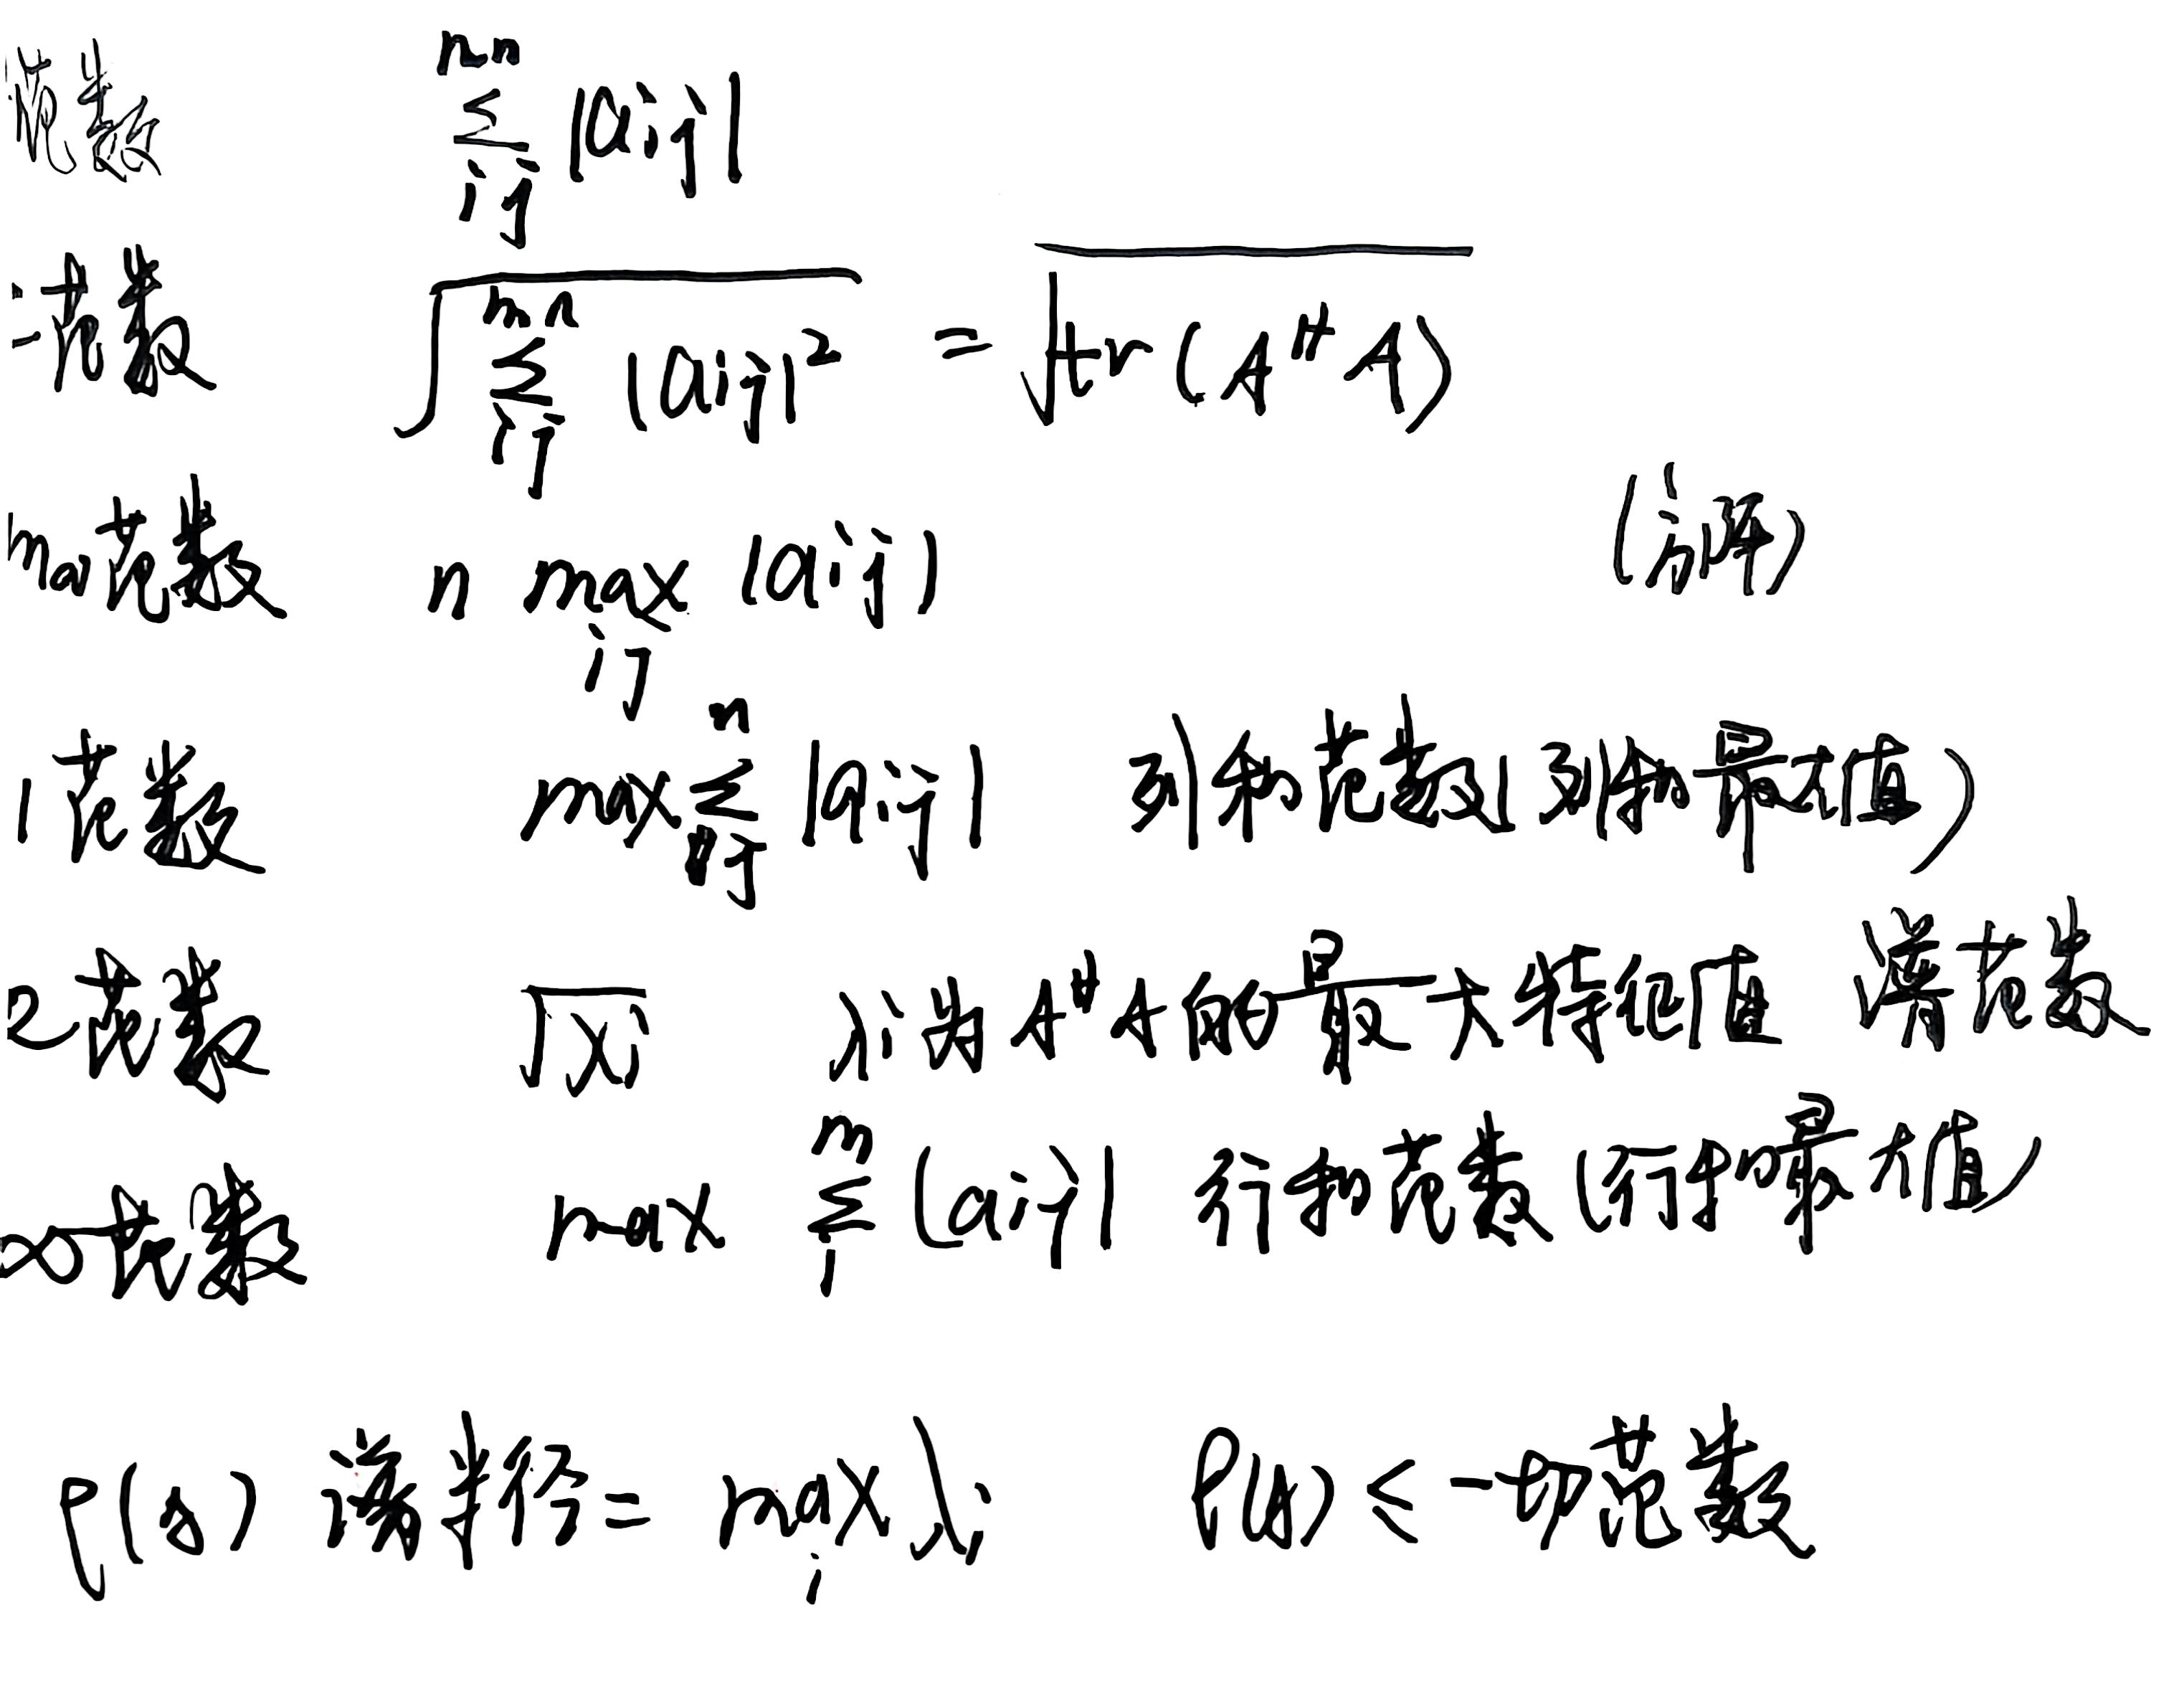 范数 mn ∑ ij |aij|
二范数 √ mn ∑ ij |aij|² = √tr(AᴴA)
m∞范数 n max ij |aij| (方阵)
1范数 max n ∑ ij |aij| 列和范数(列和最大值)
2范数 √λi λi为AᴴA的最大特征值 谱范数
∞范数 max m ∑ i |aij| 行和范数(行和最大值)
ρ(A) 谱半径= max i λi ρ(A) ≤ 一切范数